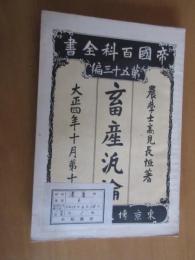 帝國百科全書
第五十三編
農學士高見長恒著
畜産汎論
大正四年十月第十
東京 博